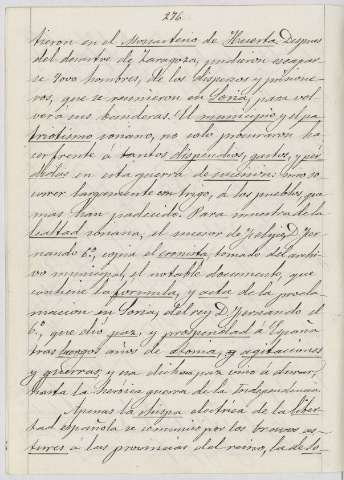 276.
tieron en el Monasterio de Huerta. Despues
del desastre de Zaragoza, pudieron escapar-
se 3000 hombres, de los dispersos y prisione-
ros, que se reunieron en Soria, para vol
ver á sus banderas. El municipio, y el pa
triotismo soriano, no solo procuraron ha
cer frente á tantos dispendios, gastos, y pér
didas en esta guerra de sucesion: sino so
correr largamente con trigo, á los pueblos, que
mas han padecido. Para muestra de la
lealtad soriana, el sucesor de Felipe, D. Fer
nando 6.º, copia el cronista, tomado del archi
vo municipal, el notable documento, que
contiene la formula, y acta de la procla-
macion en Soria, del rey D. Fernando el
6.º, que dió paz, y prosperidad á España
tras largos años de drama, y agitaciones
y guerras, y esa dicha paz vino á durar,
hasta la heróica guerra de la Independencia.
Apenas la chispa eléctrica de la liber-
tad española se comunicó por los bravos as-
tures á las provincias del reino, la de So-